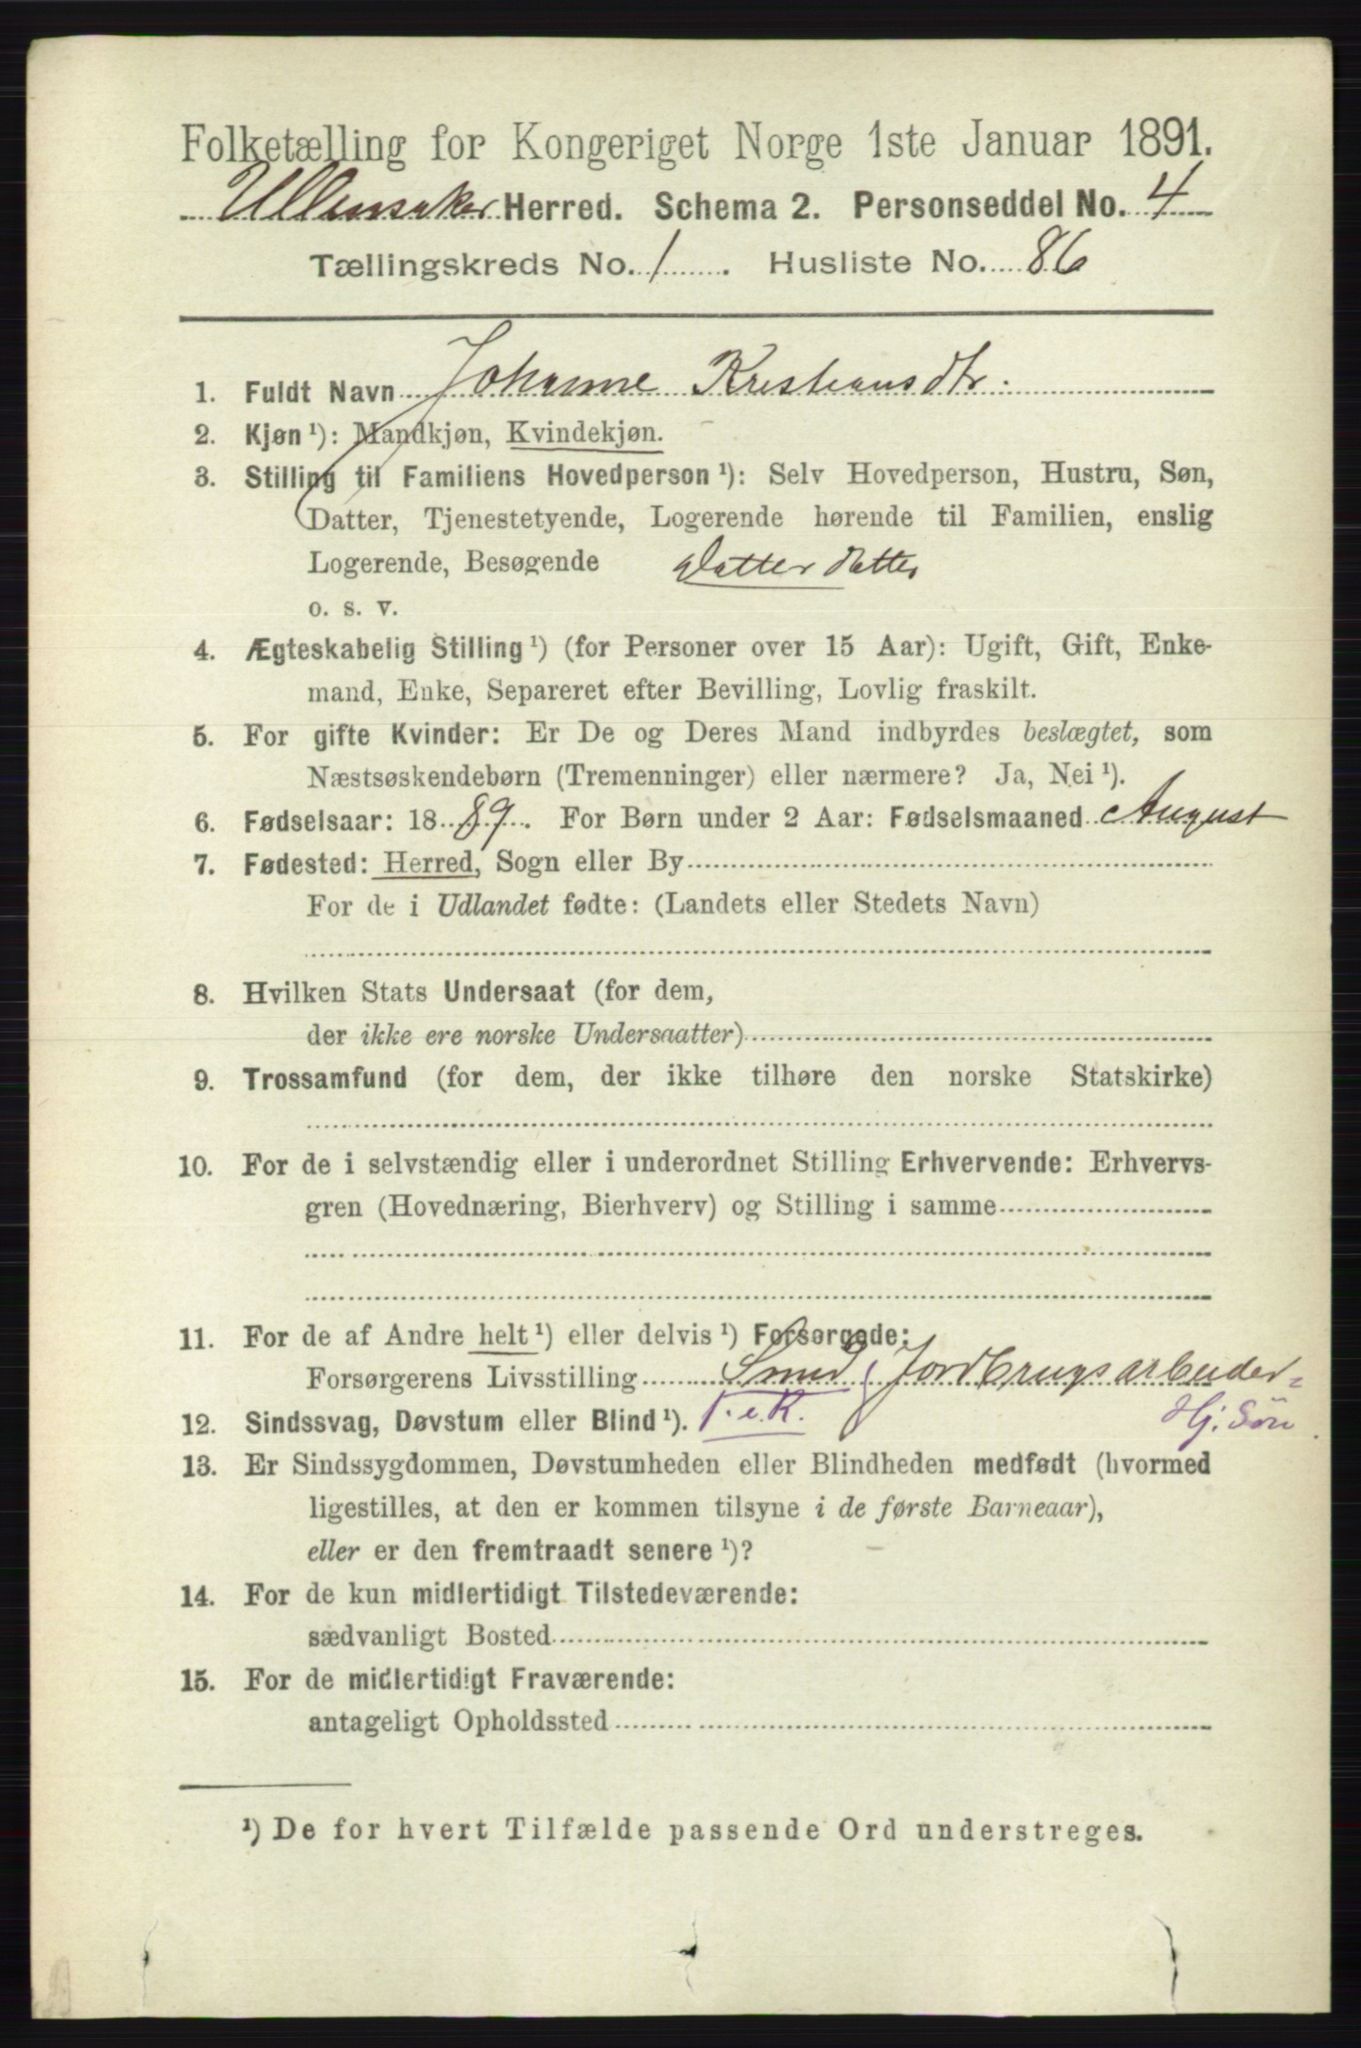 Folketælling for Kongeriget Norge 1ste Januar 1891.
Ullensaker Herred. Schema 2. Personseddel No. 4
Tællingskreds No. 1. Husliste No. 86
1. Fuldt Navn Johanne Kristiansdtr.
2. Kjøn ¹): Mandkjøn, Kvindekjøn.
3. Stilling til Familiens Hovedperson ¹): Selv Hovedperson, Hustru, Søn,
Datter, Tjenestetyende, Logerende hørende til Familien, enslig
Logerende, Besøgende Datter datter
o. s. v.
4. Ægteskabelig Stilling ¹) (for Personer over 15 Aar): Ugift, Gift, Enke-
mand, Enke, Separeret efter Bevilling, Lovlig fraskilt.
5. For gifte Kvinder: Er De og Deres Mand indbyrdes beslægtet, som
Næstsøskendebørn (Tremenninger) eller nærmere? Ja, Nei ¹).
6. Fødselsaar: 1889. For Børn under 2 Aar: Fødselsmaaned August
7. Fødested: Herred, Sogn eller By
For de i Udlandet fødte: (Landets eller Stedets Navn)
8. Hvilken Stats Undersaat (for dem,
der ikke ere norske Undersaatter)
9. Trossamfund (for dem, der ikke tilhøre den norske Statskirke)
10. For de i selvstændig eller i underordnet Stilling Erhvervende: Erhvervs-
gren (Hovednæring, Bierhverv) og Stilling i samme
11. For de af Andre helt ¹) eller delvis ¹) Forsørgede:
Forsørgerens Livsstilling Smed Jordbrugsarbeider
12. Sindssvag, Døvstum eller Blind ¹). F. e. K. Hj. Søn
13. Er Sindssygdommen, Døvstumheden eller Blindheden medfødt (hvormed
ligestilles, at den er kommen tilsyne i de første Barneaar),
eller er den fremtraadt senere ¹)?
14. For de kun midlertidigt Tilstedeværende:
sædvanligt Bosted
15. For de midlertidigt Fraværende:
antageligt Opholdssted
¹) De for hvert Tilfælde passende Ord understreges.